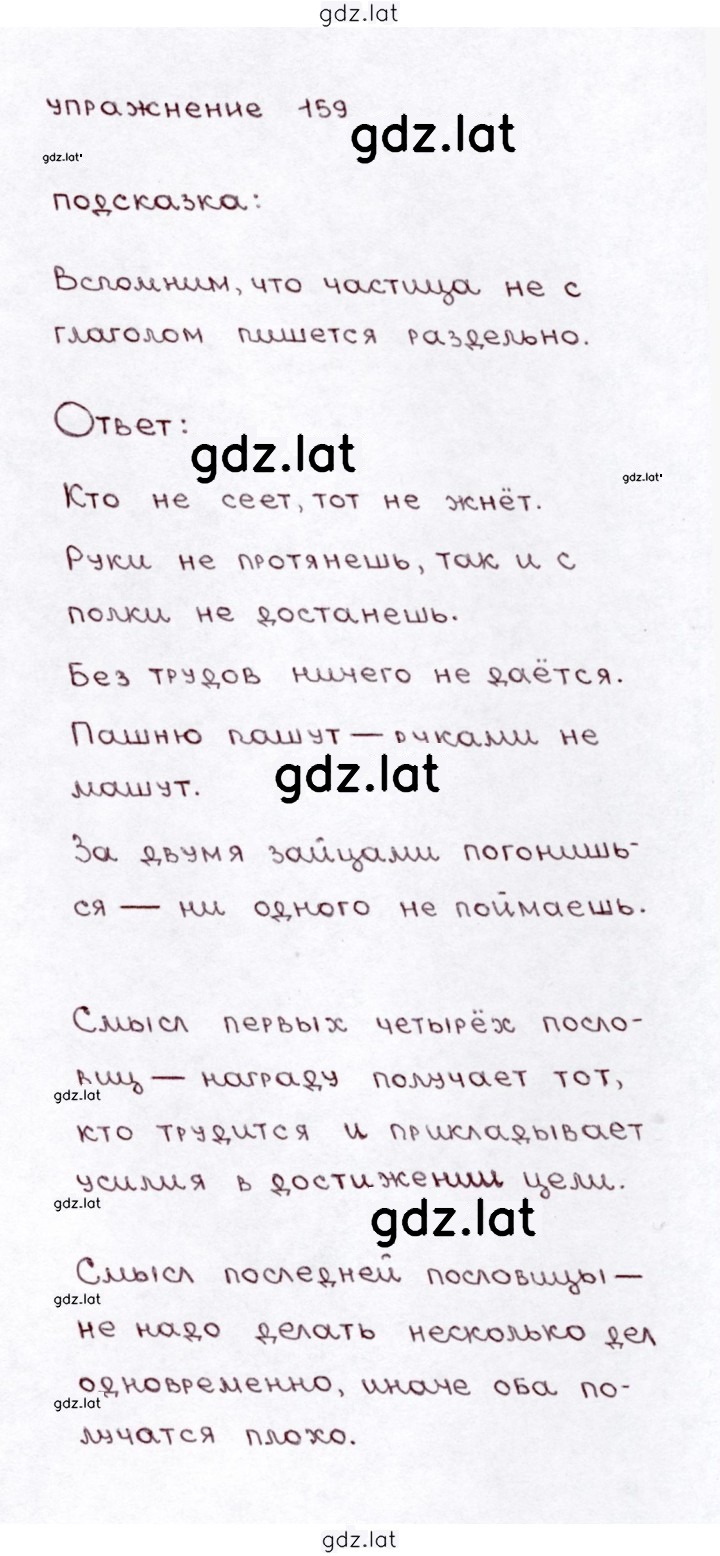 gdz.lat
упражнение 159
gdz.lat
gdz.lat
подсказка:
Вспомним, что частица не с
глаголом пишется раздельно.
Ответ:
gdz.lat
gdz.lat
Кто не сеет, тот не жнёт.
Руки не протянешь, так и с
полки не достанешь.
Без трудов ничего не даётся.
Пашню пашут — руками не
gdz.lat
машут.
За двумя зайцами погонишь-
ся — ни одного не поймаешь.
Смысл первых четырёх посло-
виц — награду получает тот,
gdz.lat
кто трудится и прикладывает
усилия в достижении цели.
gdz.lat
gdz.lat
Смысл последней пословицы —
gdz.lat
не надо делать несколько дел
одновременно, иначе оба по-
gdz.lat
лучатся плохо.
gdz.lat